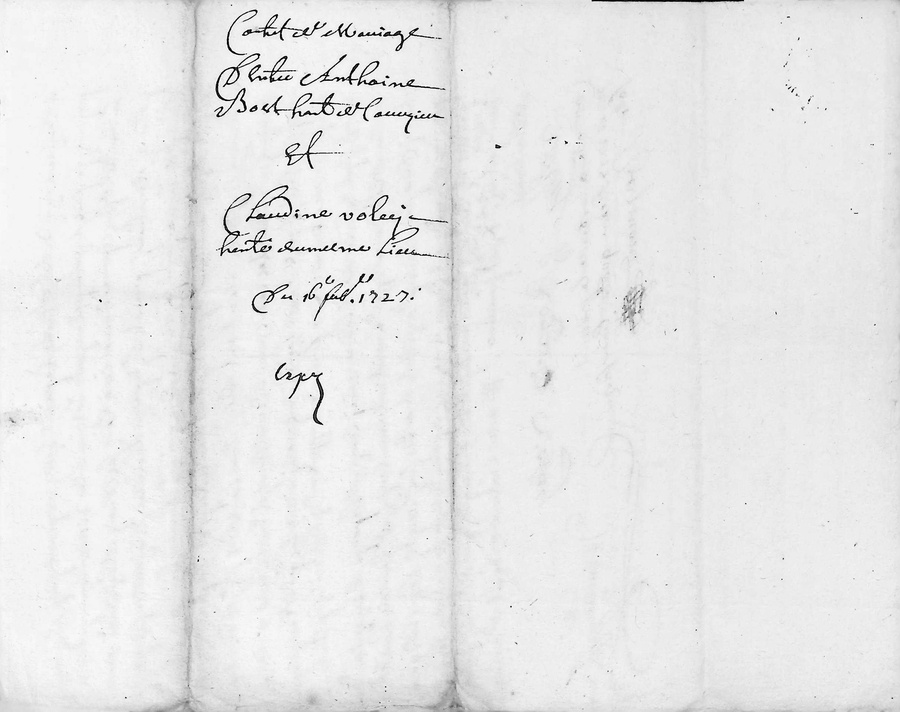 Contrt de Mariage
D'entre Anthoine
Bost habt de
Et
Claudine
habte du mesme Lieu
Du 16e febr. 1727.